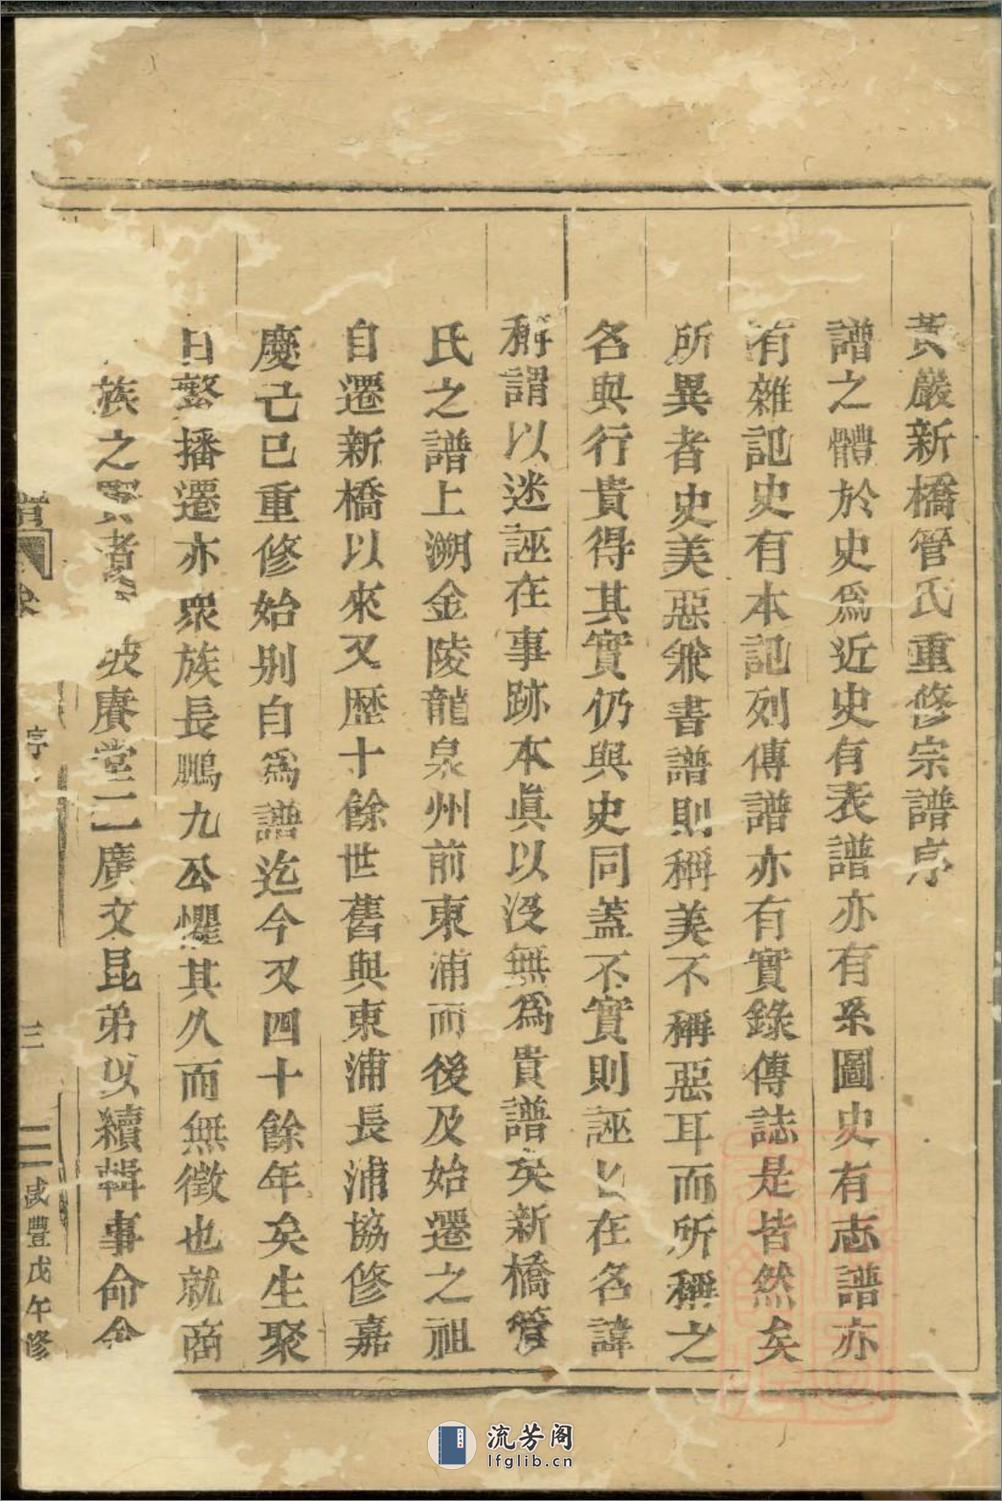 黃巖新橋管氏重修宗譜序
譜之體於史爲近史有表譜亦有系圖史有志譜亦
有雜記史有本記列傳譜亦有實錄傳誌是皆然矣
所異者史美惡兼書譜則稱美不稱惡耳而所稱之
名與行貴得其實仍與史同蓋不實則誣誣在名諱
稱謂以迷誣在事跡本眞以沒無爲貴譜矣新橋管
氏之譜上溯金陵龍泉州前東浦而後及始遷之祖
自遷新橋以來又歷十餘世舊與東浦長浦協修嘉
慶己巳重修始別自爲譜迄今又四十餘年矣生聚
日繁播遷亦衆族長鵬九公懼其久而無徵也就商
族之賢者坡賡堂二廣文昆弟以續輯事命余
序
三
咸豐戊午修
流芳阁
lfglib.cn